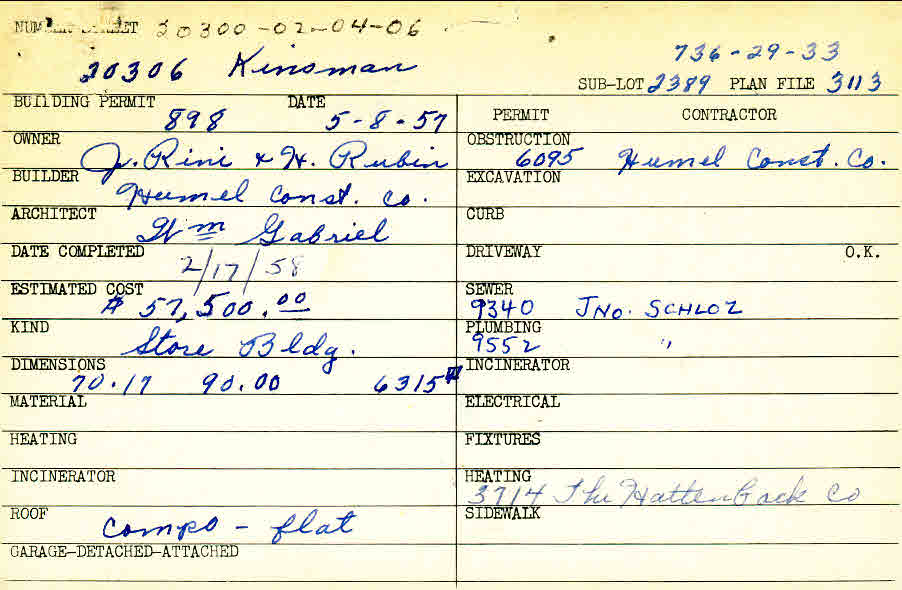 NUMBER STREET 20300-02-04-06
20306 Kinsman
736-29-33
SUB-LOT 2389 PLAN FILE 3113
BUILDING PERMIT DATE
898 5-8-57
OWNER
J. Rini & H. Rubin
BUILDER
Humel Const. Co.
ARCHITECT
Wm Gabriel
DATE COMPLETED
2/17/58
ESTIMATED COST
$ 57,500.00
KIND
Store Bldg.
DIMENSIONS
70.17 90.00 6315
MATERIAL
HEATING
INCINERATOR
ROOF
Compo - flat
GARAGE-DETACHED-ATTACHED
PERMIT CONTRACTOR
OBSTRUCTION
6095 Humel Const. Co.
EXCAVATION
CURB
DRIVEWAY O.K.
SEWER
9340 JNO. SCHLOZ
PLUMBING
9552 "
INCINERATOR
ELECTRICAL
FIXTURES
HEATING
3714 The Hattenback Co
SIDEWALK